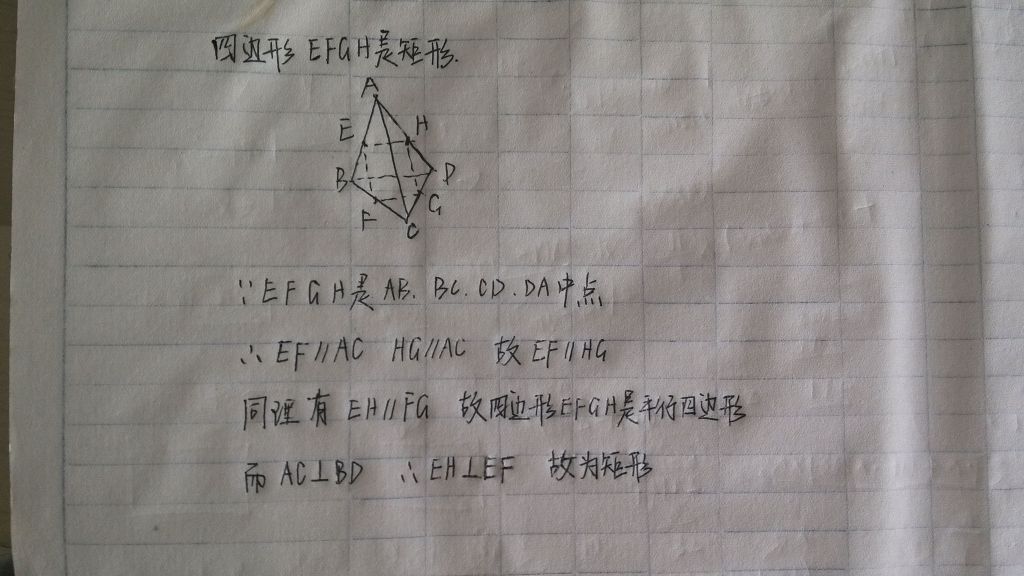 四边形 EFGH是矩形.
A
E
H
B
D
F
G
C
∵ E F G H是 AB. BC. CD. DA中点
∴ EF//AC HG//AC 故 EF//HG
同理有 EH//FG 故四边形EFGH是平行四边形
而 AC⊥BD ∴ EH⊥EF 故为矩形